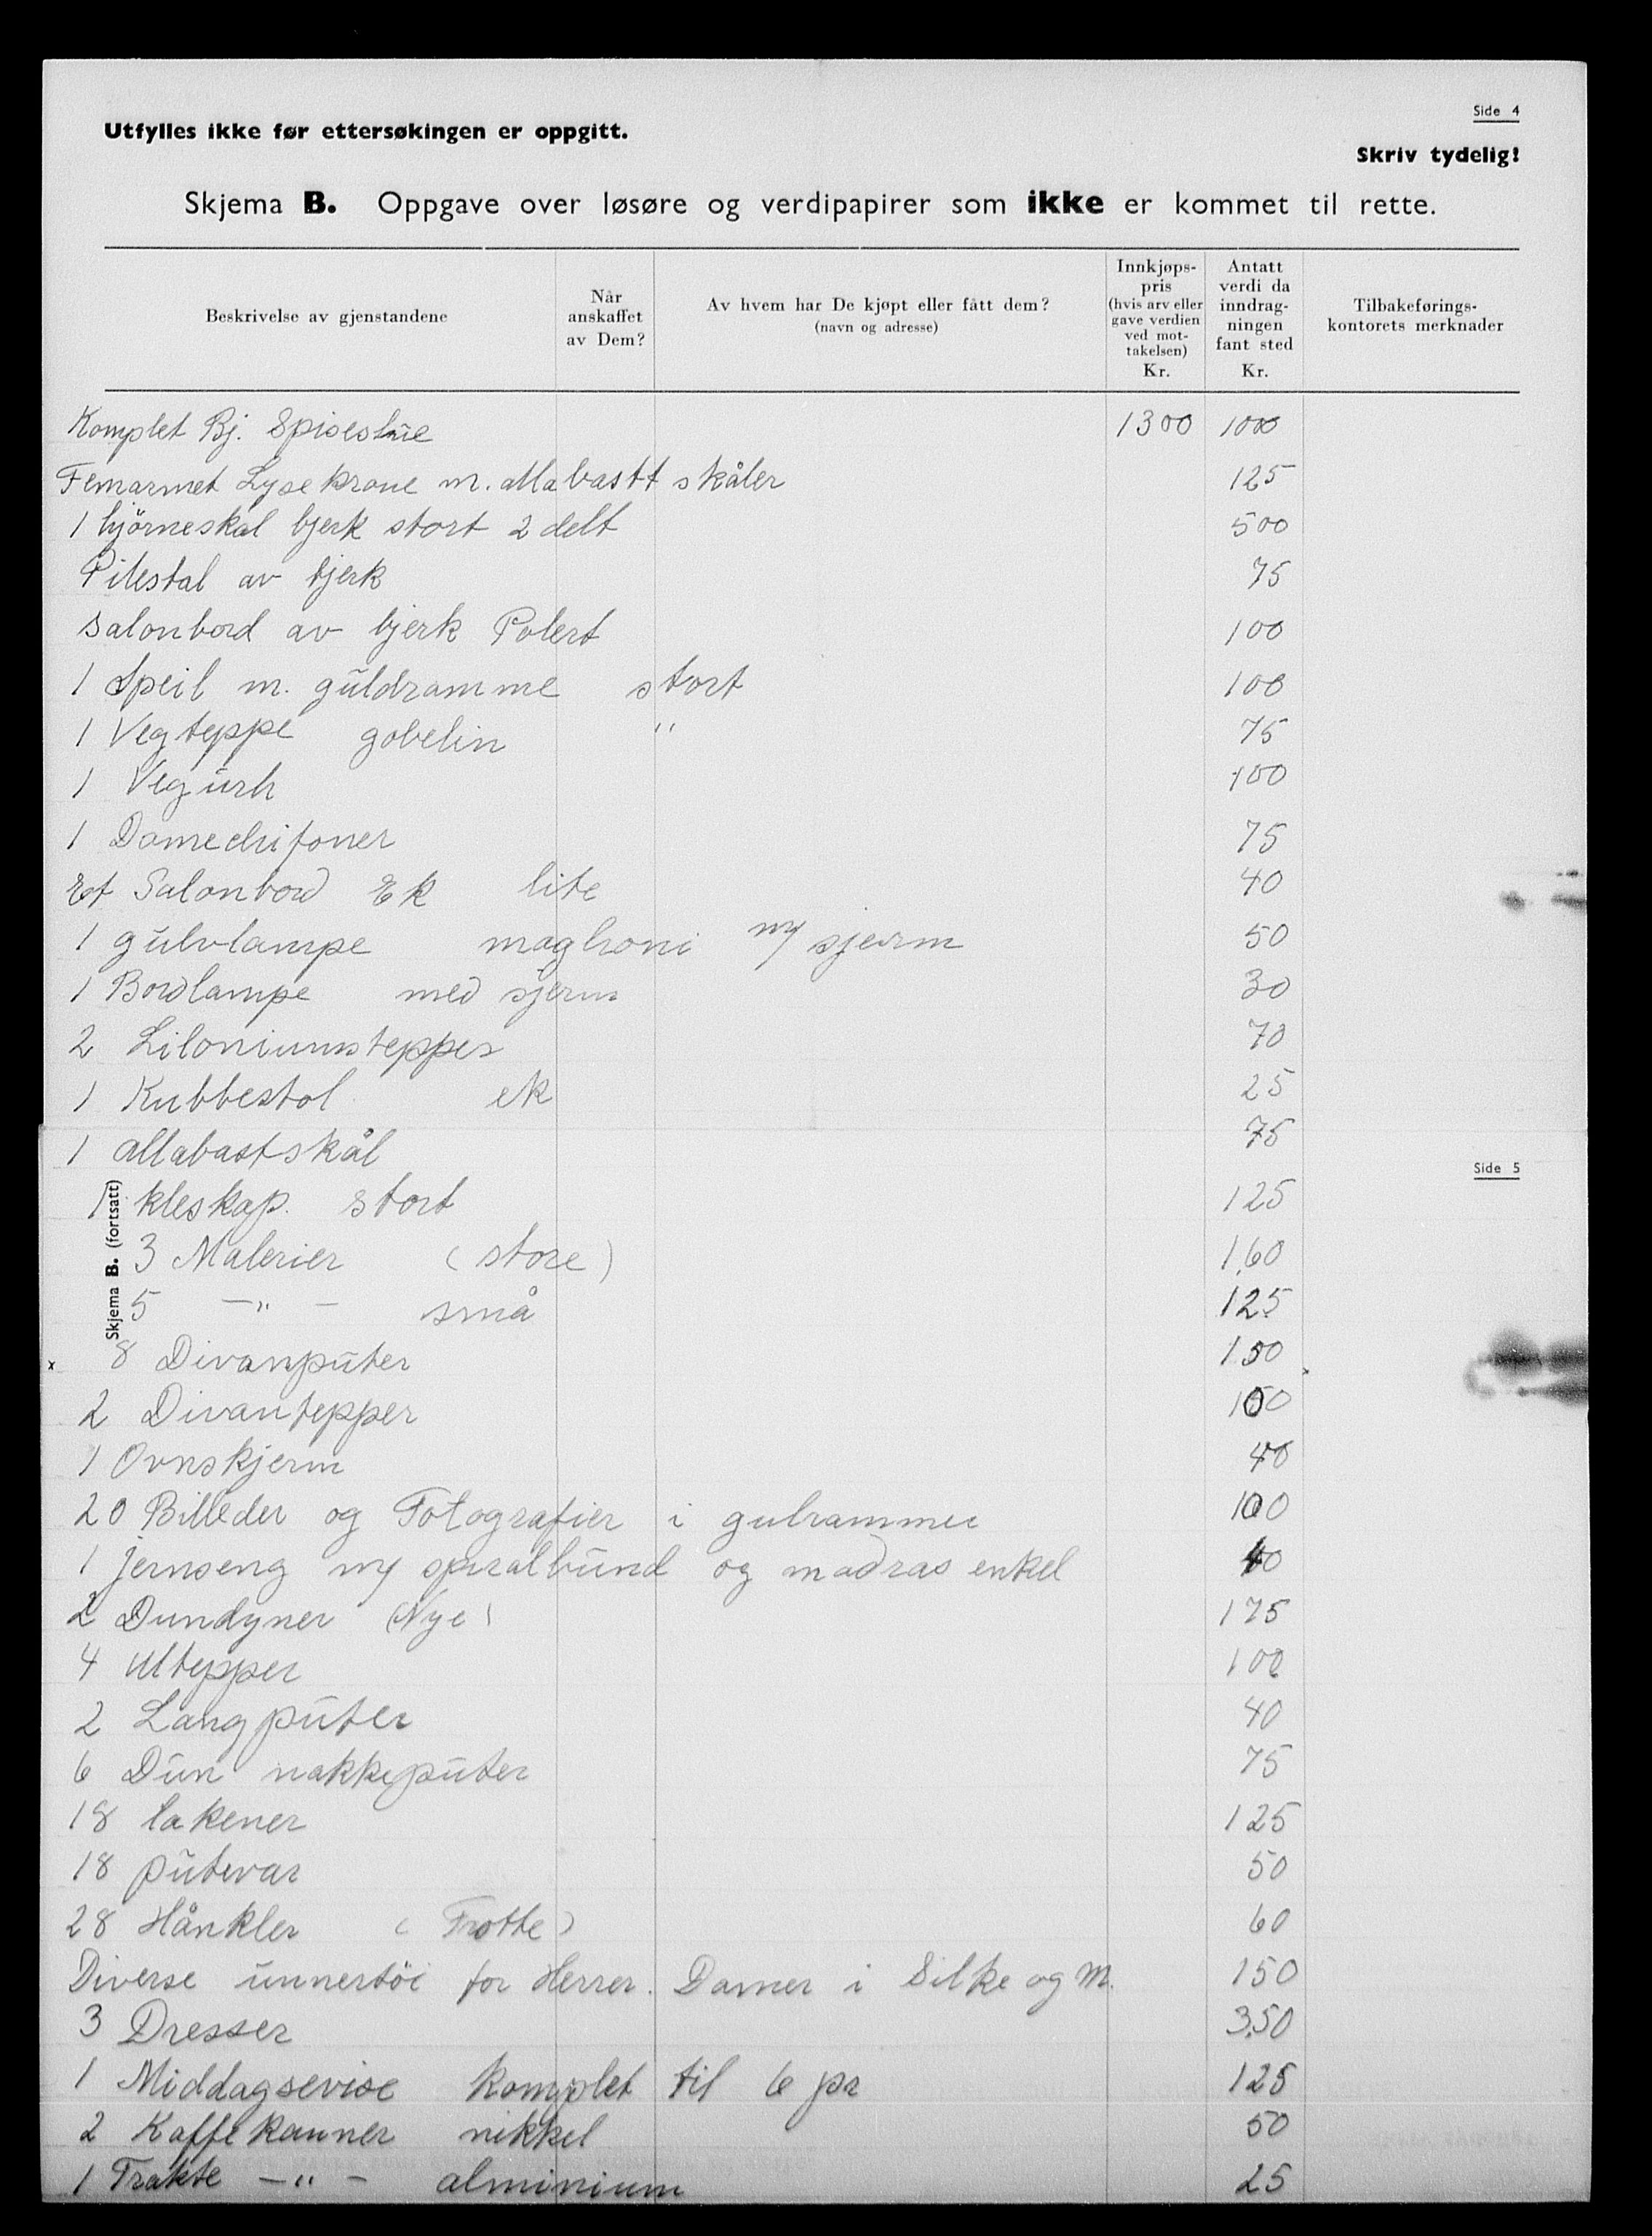 Side 4
Utfylles ikke før ettersøkingen er oppgitt.
Skriv tydelig!
Skjema B. Oppgave over løsøre og verdipapirer som ikke er kommet til rette.
Beskrivelse av gjenstandene
Når anskaffet av Dem?
Av hvem har De kjøpt eller fått dem? (navn og adresse)
Innkjøps-pris (hvis arv eller gave verdien ved mot-takelsen) Kr.
Antatt verdi da inndrag-ningen fant sted Kr.
Tilbakeførings-kontorets merknader
Komplet Bj. Spisestue 1300 1000
Femarmet Lysekrone m. allabastt skåler 125
1 hjörneskal bjerk stort 2 delt 500
Pilestal av bjerk 75
salonbord av bjerk Polert 100
1 Speil m. guldramme stort 100
1 Vegteppe gobelin " 75
1 Veg urh 100
1 Damechifoner 75
Et Salonbord Ek lite 40
1 gulvlampe maghoni my sjerm 50
1 Bordlampe med sjerm 30
2 Liloniumstepper 70
1 Kubbestol ek 25
1 allabastskål 75
Side 5
Skjema B. (fortsatt)
1 kleskap. stort 125
3 Malerier (store) 160
5 -"- små 125
x 8 Divanputer 150
2 Divantepper
1 Ovnskjerm 40
20 Billeder og Fotografier i gulrammer 100
1 jernseng my spiralbund og madras enkel 40
2 Dundyner (Nye) 175
4 Ultepper 100
2 Langputer 40
6 Dun nakkeputer 75
18 lakener 125
18 putevar 50
28 Hånkler (Frotte) 60
Diverse unnertöi for Herrer. Damer i Silke og M. 150
3 Dresser 350
1 Middagsevise komplet til 6 pr 125
2 Kaffekanner nikkel 50
1 Trakte -"- alminium 25